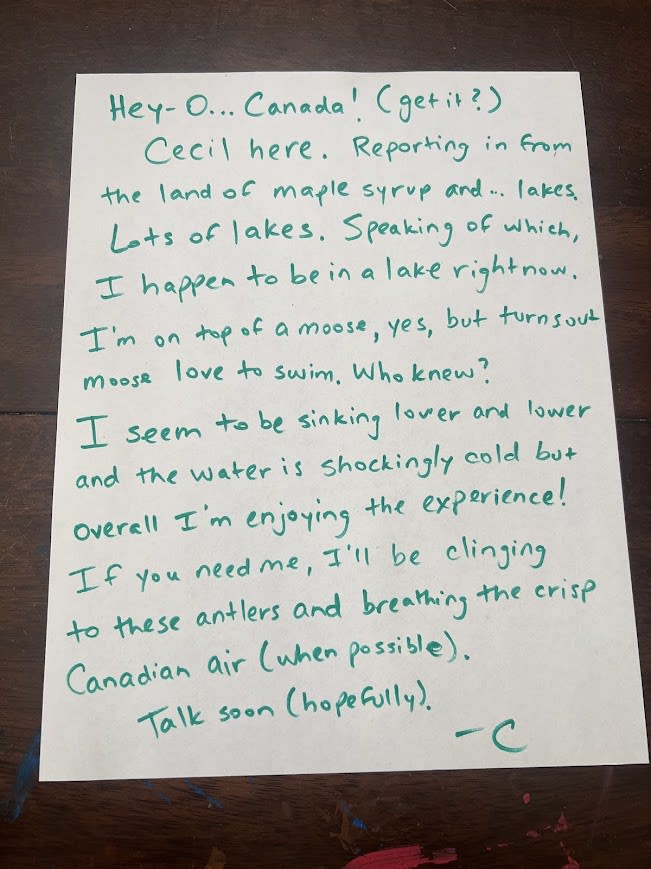 Hey-O... Canada! (get it?)
Cecil here. Reporting in from
the land of maple syrup and... lakes.
Lots of lakes. Speaking of which,
I happen to be in a lake right now.
I'm on top of a moose, yes, but turns out
moose love to swim. Who knew?
I seem to be sinking lower and lower
and the water is shockingly cold but
overall I'm enjoying the experience!
If you need me, I'll be clinging
to these antlers and breathing the crisp
Canadian air (when possible).
Talk soon (hopefully).
-C